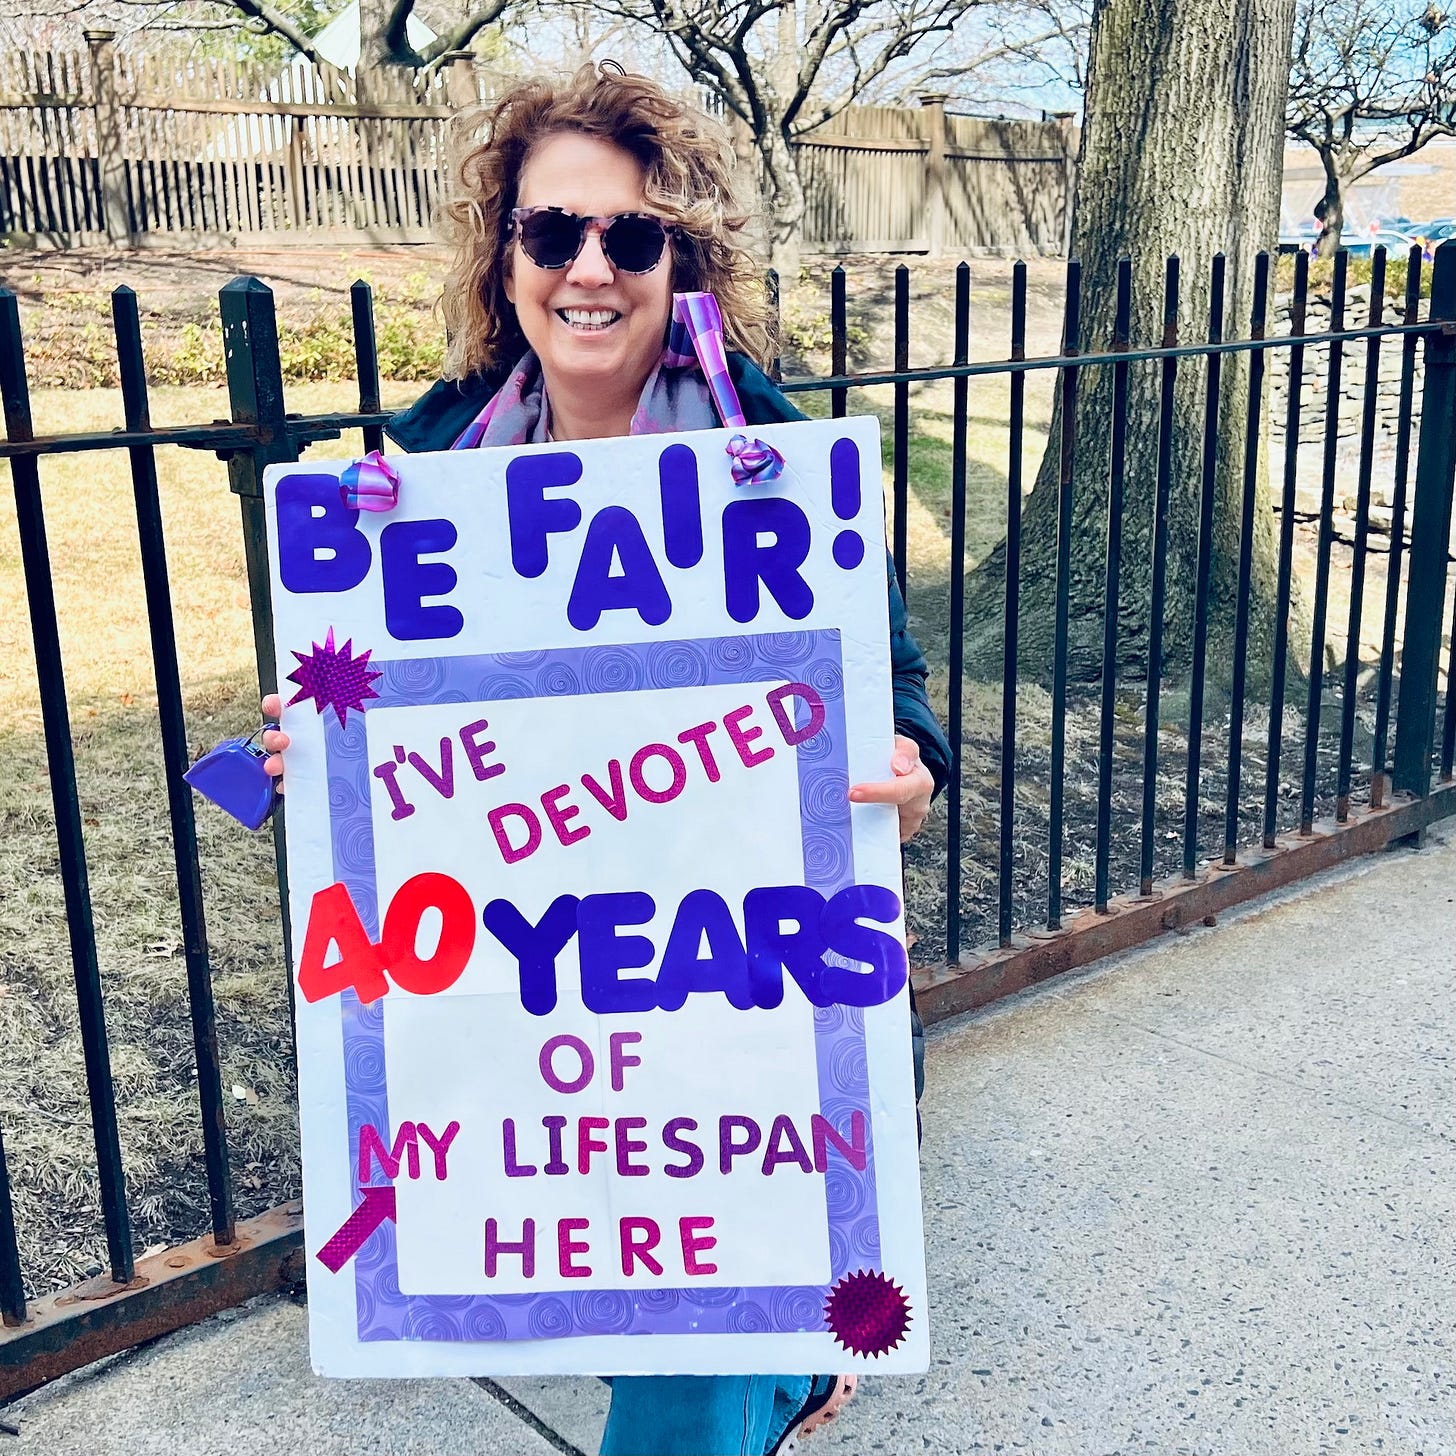 BE FAIR!
I'VE
DEVOTED
40 YEARS
OF
MY LIFESPAN
HERE